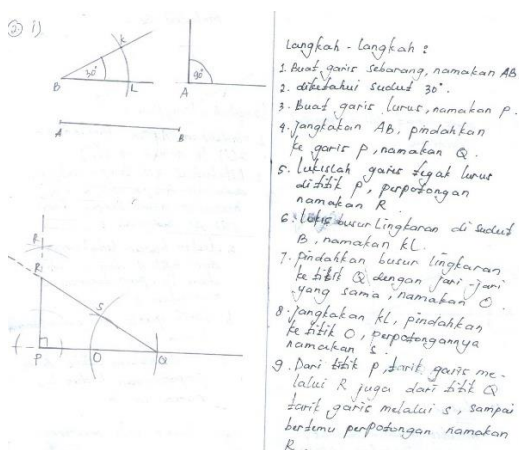 ② i)
K
30°
B
L
90°
A
A
B
R
R
S
P
O
Q
Langkah - langkah :
1. Buat garis sebarang, namakan AB
2. diketahui sudut 30°.
3. Buat garis lurus, namakan P.
4. jangkakan AB, pindahkan
ke garis P, namakan Q.
5. lukislah garis tegak lurus
dititik P, perpotongan
namakan R.
6. lukis busur lingkaran di sudut
B, namakan KL.
7. pindahkan busur lingkaran
ke titik Q dengan jari-jari
yang sama, namakan O.
8. jangkakan KL, pindahkan
ke titik O, perpotongannya
namakan S.
9. Dari titik P, tarik garis me-
lalui R juga dari titik Q
tarik garis melalui S, sampai
bertemu perpotongan namakan
R.